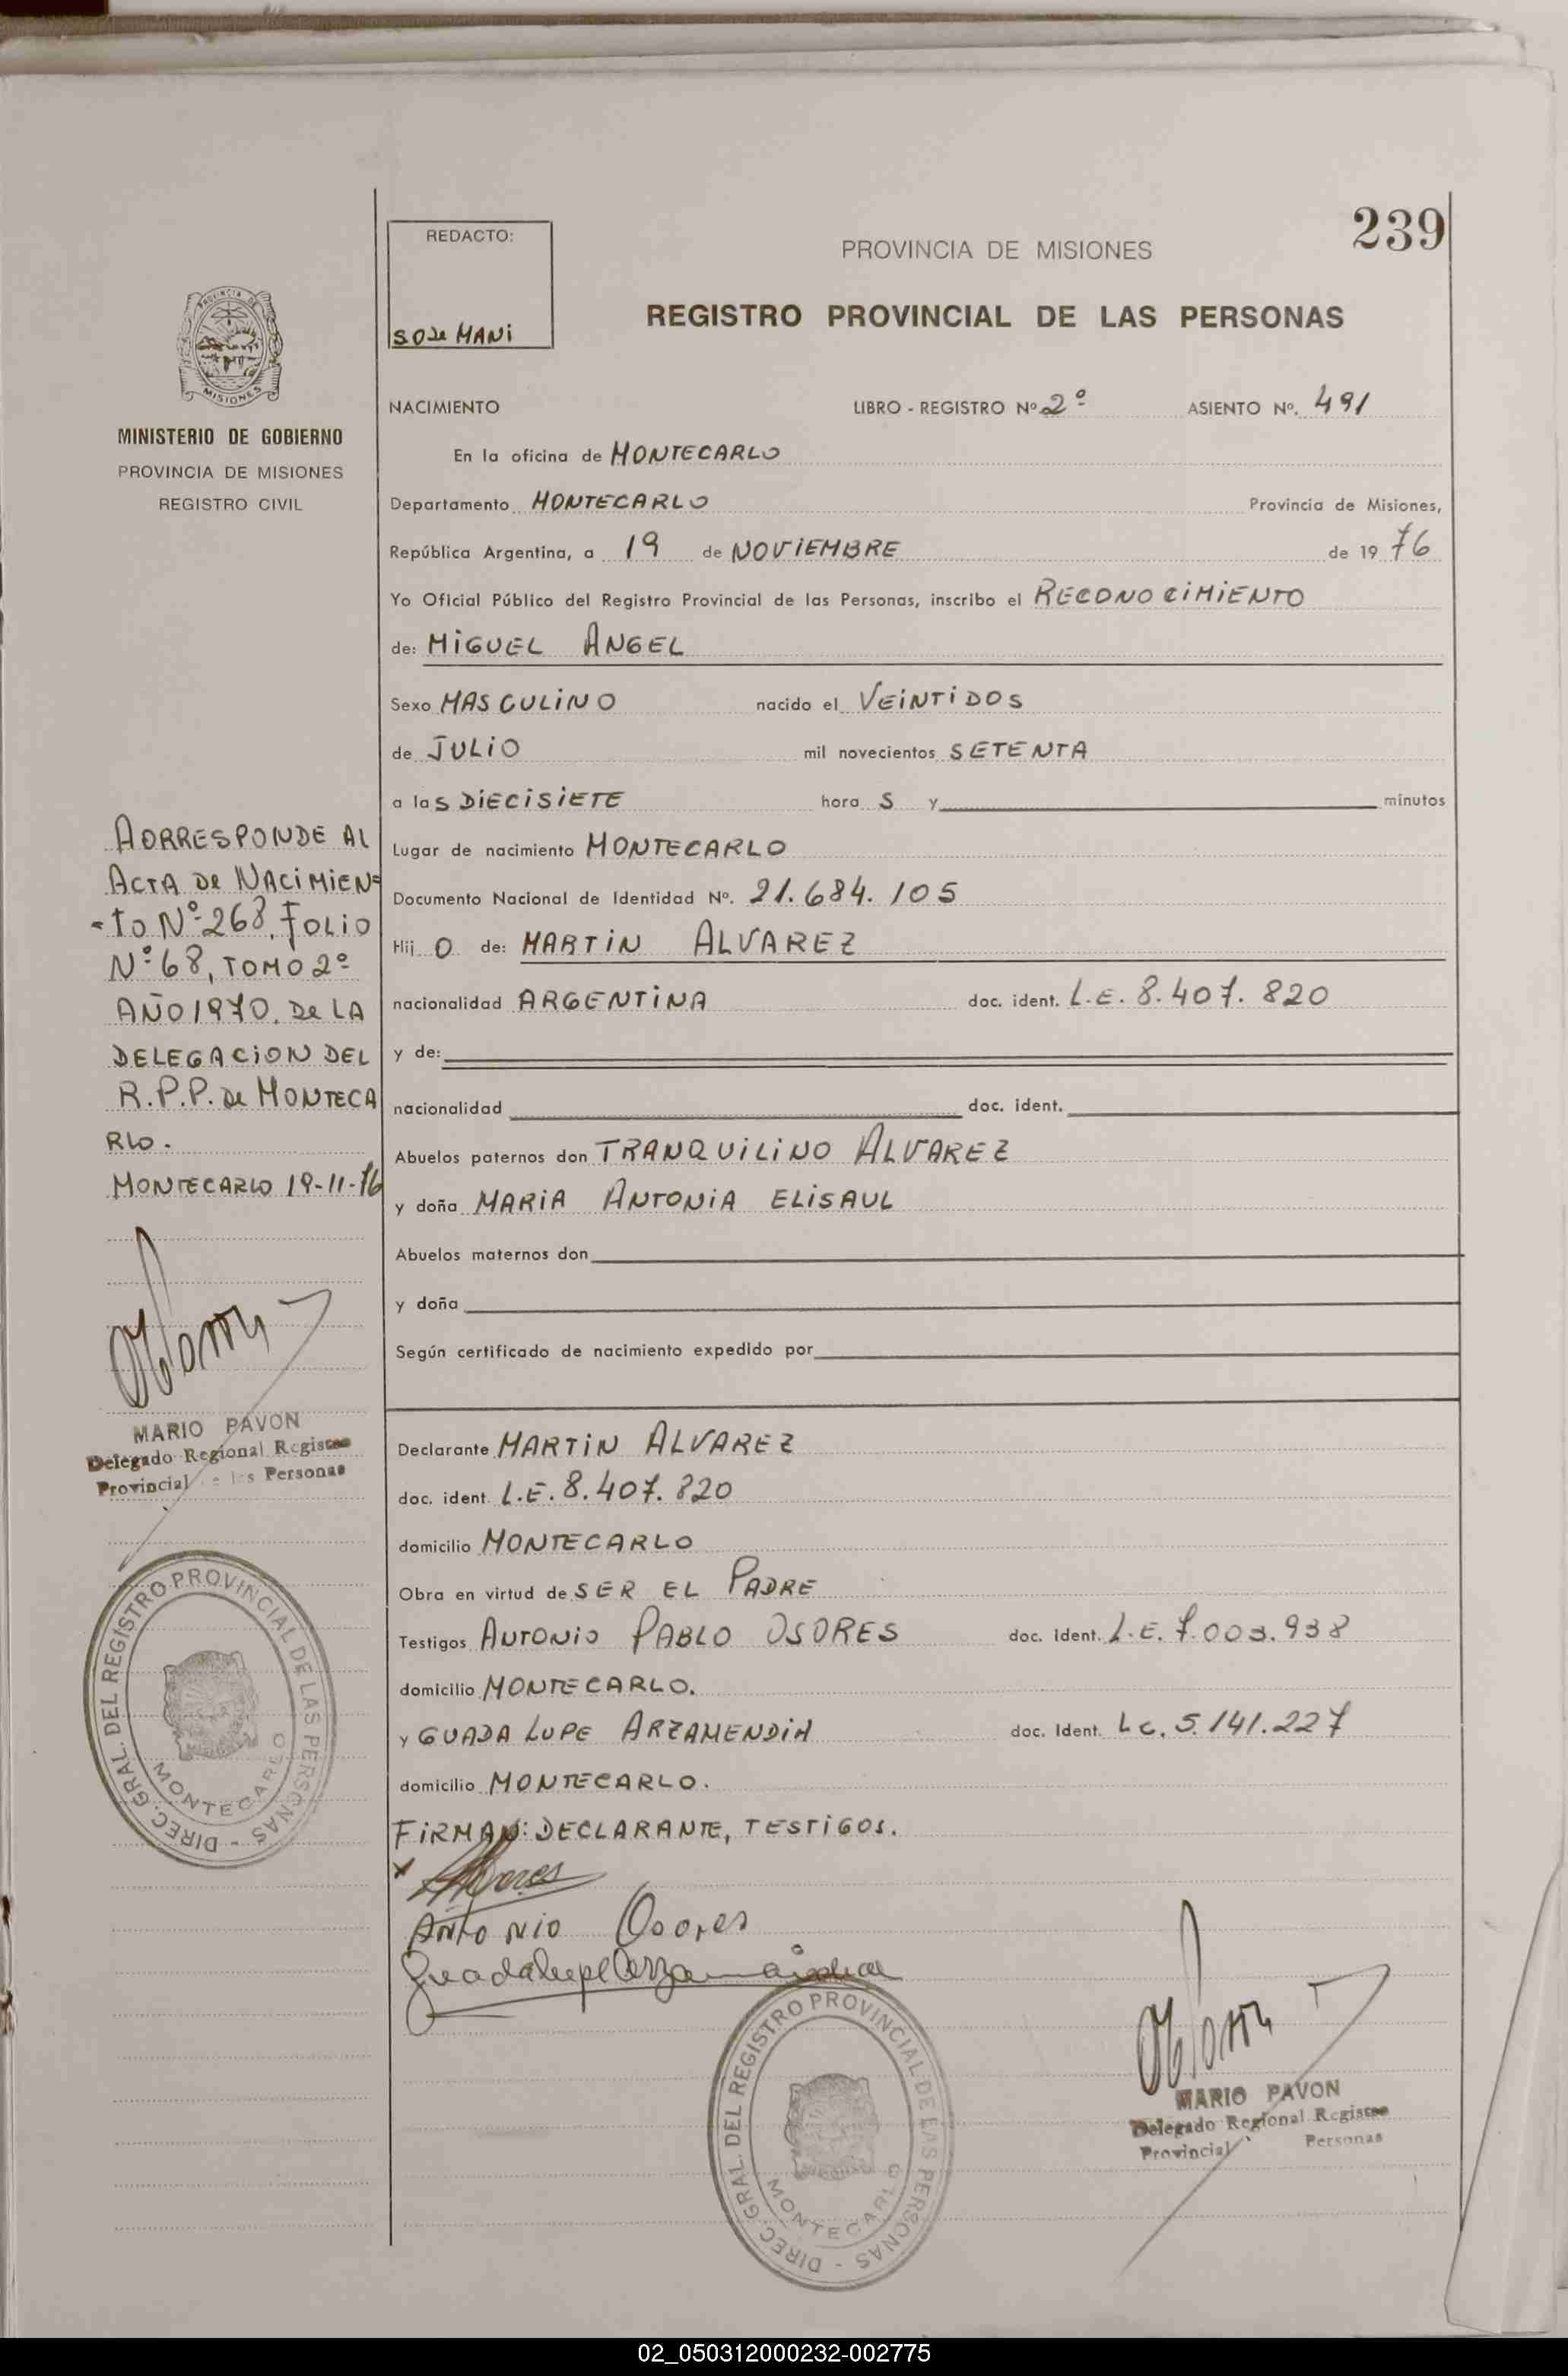 239
REDACTO:
PROVINCIA DE MISIONES
REGISTRO PROVINCIAL DE LAS PERSONAS
MISIONES
MINISTERIO DE GOBIERNO
PROVINCIA DE MISIONES
REGISTRO CIVIL
NACIMIENTO LIBRO - REGISTRO Nº 2º ASIENTO Nº. 491
En la oficina de MONTECARLO
Departamento MONTECARLO Provincia de Misiones,
República Argentina, a 19 de NOVIEMBRE de 19 76
Yo Oficial Público del Registro Provincial de las Personas, inscribo el RECONOCIMIENTO
de: MIGUEL ANGEL
Sexo MASCULINO nacido el VEINTIDOS
de JULIO mil novecientos SETENTA
a las DIECISIETE hora S y minutos
Lugar de nacimiento MONTECARLO
Documento Nacional de Identidad Nº. 21.684.105
Hij O de: MARTIN ALVAREZ
nacionalidad ARGENTINA doc. ident. L.E. 8.407.820
y de:
nacionalidad doc. ident.
Abuelos paternos don TRANQUILINO ALVAREZ
y doña MARIA ANTONIA ELISAUL
Abuelos maternos don
y doña
Según certificado de nacimiento expedido por
AORRESPONDE AL
ACTA DE NACIMIEN=
-TO Nº 268, FOLIO
Nº 68, TOMO 2º
AÑO 1970, DE LA
DELEGACION DEL
R.P.P. DE MONTECA
RLO.
MONTECARLO 19-11-76
MARIO PAVON
Delegado Regional Registro
Provincial de las Personas
DIREC. GRAL. DEL REGISTRO PROVINCIAL DE LAS PERSONAS -
MONTECARLO
Declarante MARTIN ALVAREZ
doc. ident. L.E. 8.407.820
domicilio MONTECARLO
Obra en virtud de SER EL PADRE
Testigos ANTONIO PABLO OSORES doc. ident. L.E. 7.003.938
domicilio MONTECARLO.
y GUADALUPE ARZAMENDIA doc. Ident. L.C. 5.141.227
domicilio MONTECARLO.
FIRMAN: DECLARANTE, TESTIGOS.
x Alvares
ANTONIO Osores
Guadalupe Arzamendia
DIREC. GRAL. DEL REGISTRO PROVINCIAL DE LAS PERSONAS -
MONTECARLO
MARIO PAVON
Delegado Regional Registro
Provincial Personas
02_050312000232-002775